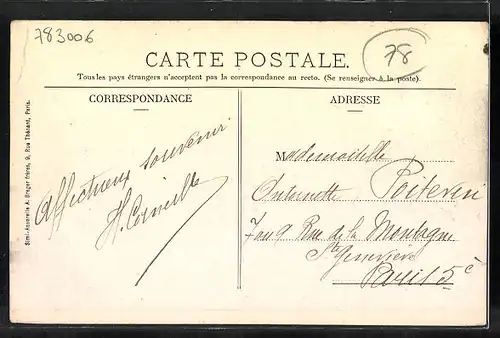 783006
78
CARTE POSTALE.
Tous les pays étrangers n'acceptent pas la correspondance au recto. (Se renseigner à la poste).
CORRESPONDANCE
ADRESSE
Simi-Aquarelle A. Breger frères, 9, Rue Thénard, Paris.
Affectueux souvenir
H.
Mademoiselle
Antoinette Poitevin
7 ou 9 Rue de la Montagne
Ste Geneviève
Paris 5e